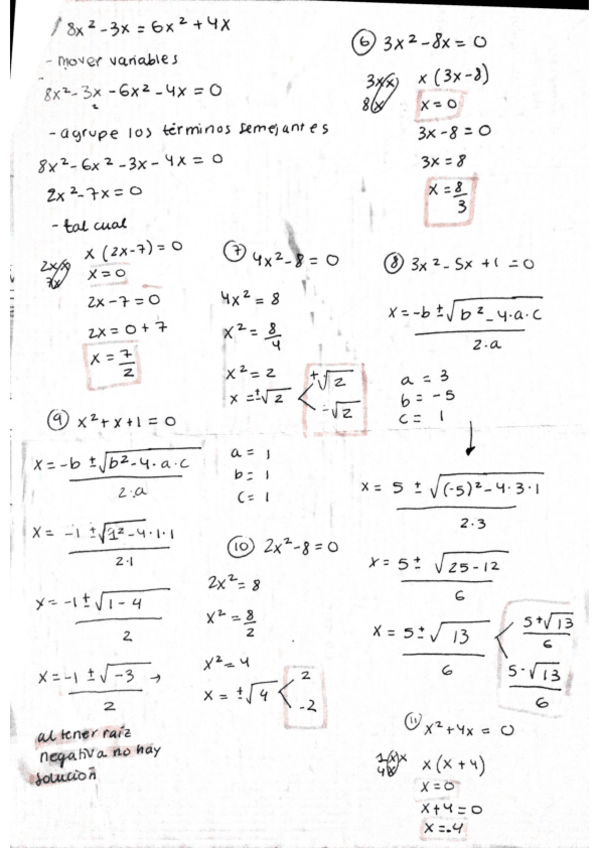 8x² - 3x = 6x² + 4x
- mover variables
8x² - 3x - 6x² - 4x = 0
- agrupe los términos semejantes
8x² - 6x² - 3x - 4x = 0
2x² - 7x = 0
- tal cual
x (2x - 7) = 0
x = 0
2x - 7 = 0
2x = 0 + 7
x = 7/2
⑥ 3x² - 8x = 0
x (3x - 8)
x = 0
3x - 8 = 0
3x = 8
x = 8/3
⑦ 4x² - 8 = 0
4x² = 8
x² = 8/4
x² = 2
x = ±√2 < +√2
-√2
⑧ 3x² - 5x + 1 = 0
x = -b ± √b² - 4·a·c / 2·a
a = 3
b = -5
c = 1
x = 5 ± √(-5)² - 4·3·1 / 2·3
x = 5 ± √25 - 12 / 6
x = 5 ± √13 / 6 < 5 + √13 / 6
5 - √13 / 6
⑨ x² + x + 1 = 0
x = -b ± √b² - 4·a·c / 2·a
a = 1
b = 1
c = 1
x = -1 ± √1² - 4·1·1 / 2·1
x = -1 ± √1 - 4 / 2
x = -1 ± √-3 / 2 →
al tener raíz
negativa no hay
solución
⑩ 2x² - 8 = 0
2x² = 8
x² = 8/2
x² = 4
x = ±√4 < 2
-2
⑪ x² + 4x = 0
x (x + 4)
x = 0
x + 4 = 0
x = -4